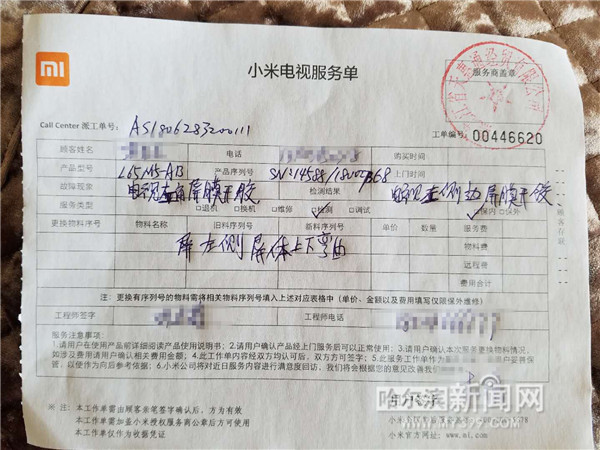 mi
小米电视服务单
服务商盖章
Call Center 派工单号: AS1806283200111
工单编号: 00446620
顾客姓名 电话 购买时间
产品型号 L65M5-AB 产品序列号 上门时间
故障现象 屏膜开胶 检测结果 电视左侧边屏膜开胶
服务类型 □退机 □换机 □维修 检测 □调试 保内 □保外
更换物料序号 物料名称 旧料序列号 新料序列号 单价 数量 服务费
屏左侧屏体上下弯曲
物料费
远程费
费用合计
注：更换有序列号的物料需将相关物料序列号填入上述对应表格中（单价、金额以及费用填写仅限保外维修）
工程师签字 工程师电话
服务注意事项：
1.请用户在使用产品前详细阅读产品使用说明书；2.请用户确认产品经上门服务后可以正常使用；3.请用户确认本次服务更换物料情况，
如涉及费用请用户确认相关费用金额；4.此工作单内容经双方均认可后，双方方可签字；5.此服务工作单作为 客户妥善保
管，以便作为向后参考依据；6.小米公司将对近日服务内容进行满意度回访，我们将会根据您的意见改善我们
※ 注： 本工作单需由顾客亲笔签字确认后，方为有效
本工作单需加盖小米授权服务商公章后方可使用
本工作单仅作为收据凭证
小米官方网址: www.mi.com
哈尔滨新闻网
www.my399.com